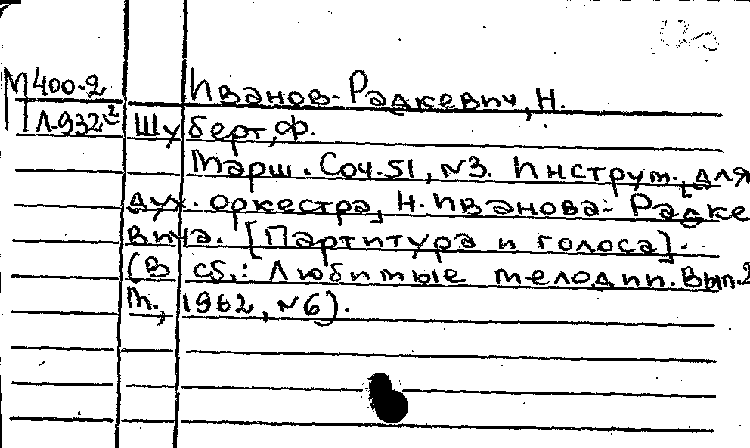 М 400-2
Л-932²
Иванов-Радкевич, Н.
Шуберт, Ф.
Марш. Соч. 51, №3. Инструм. для
дух. оркестра, Н. Иванова-Радке
вича. [Партитура и голоса].
(В сб.: Любимые мелодии. Вып. 2
М., 1962, №6).